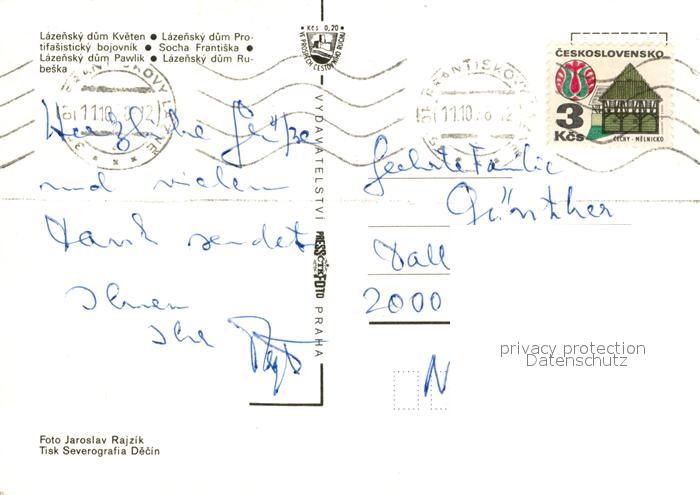 Lázeňský dům Květen ● Lázeňský dům Pro-
tifašistický bojovník ● Socha Františka ●
Lázeňský dům Pawlik ● Lázeňský dům Ru-
beška
Kčs 0,20
VE PROSPĚCH CESTOVNÍHO RUCHU
VYDAVATELSTVÍ PRESSFOTO PRAHA
ČTK
FRANTIŠKOVY LÁZNĚ
11.10.
FRANTIŠKOVY
11.10.
ČESKOSLOVENSKO
3
Kčs
ČECHY - MĚLNICKO
Herzliche Grüße
und vielen
Dank sendet
Ihnen
Ihr
Geehrte Familie
Günther
2000
N
privacy protection
Datenschutz
Foto Jaroslav Rajzík
Tisk Severografia Děčín